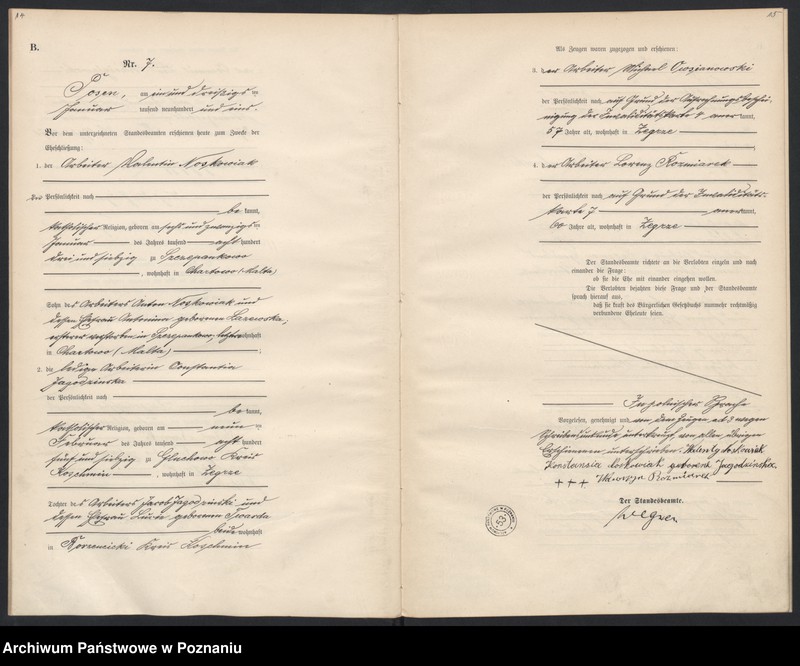 14
B.
Nr. 7.
Posen, am ein und dreißigsten
Januar tausend neunhundert und eins.
Vor dem unterzeichneten Standesbeamten erschienen heute zum Zwecke der
Eheschließung:
1. der Arbeiter Valentin Noskowiak
der Persönlichkeit nach
be kannt,
katholischer Religion, geboren am sechs und zwanzigsten
Januar des Jahres tausend acht hundert
drei und siebzig zu Szczepankowo
, wohnhaft in Chartowo (Malta)
Sohn des Arbeiters Anton Noskowiak und
dessen Ehefrau Antonina geborenen
ersterer verstorben in Szczepankowo, letztere wohnhaft
in Chartowo (Malta) ;
2. die ledige Arbeiterin Constantia
Jagodzinska
der Persönlichkeit nach
be kannt,
katholischer Religion, geboren am neun ten
Februar des Jahres tausend acht hundert
fünf und siebzig zu Gluchowo Kreis
Koschmin , wohnhaft in Zegrze
Tochter des Arbeiters Jacob Jagodzinski und
dessen Ehefrau geborenen Twarda
beide wohnhaft
in Kreis Koschmin
15
Als Zeugen waren zugezogen und erschienen:
3. der Arbeiter Michael
der Persönlichkeit nach auf Grund der
der Invaliditätskarte aner kannt,
57 Jahre alt, wohnhaft in Zegrze
;
4. der Arbeiter Lorenz Kozmiarek
der Persönlichkeit nach auf Grund der Invaliditäts-
karte 7 aner kannt,
60 Jahre alt, wohnhaft in Zegrze
Der Standesbeamte richtete an die Verlobten einzeln und nach
einander die Frage:
ob sie die Ehe mit einander eingehen wollen.
Die Verlobten bejahten diese Frage und der Standesbeamte
sprach hierauf aus,
daß sie kraft des Bürgerlichen Gesetzbuchs nunmehr rechtmäßig
verbundene Eheleute seien.
In polnischer Sprache
Vorgelesen, genehmigt und von dem Zeugen ad 3 wegen
Schreibensunkunde unterkreuzt, von allen übrigen
Erschienenen unterschrieben. Walenty Noskowiak
Konstancia Noskowiak geborene Jagodzinska
+ + + Wawrzyn Kozmiarek
Der Standesbeamte.
Wegner
53
Archiwum Państwowe w Poznaniu